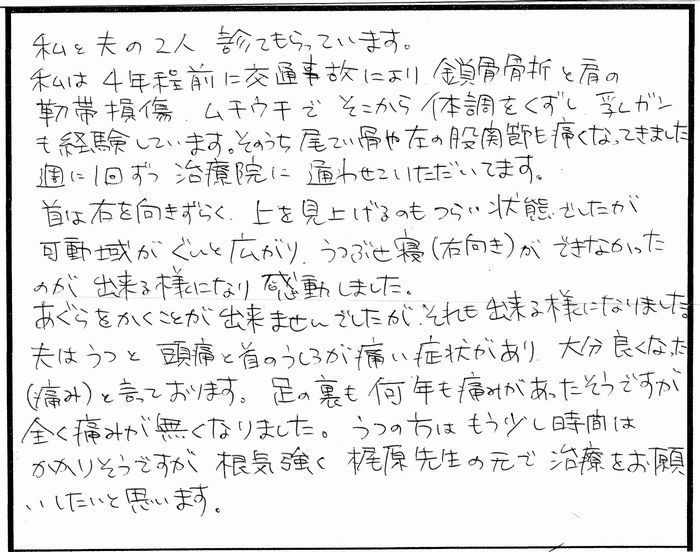 私と夫の2人 診てもらっています。
私は 4年程前に交通事故により 鎖骨骨折と肩の
靭帯損傷、ムチウチで そこから 体調をくずし 乳ガン
も経験しています。そのうち 尾てい骨や左の股関節も痛くなってきました
週に1回ずつ 治療院に 通わせていただいてます。
首は右を向きずらく、上を見上げるのもつらい状態でしたが
可動域がぐいと広がり、うつぶせ寝(右向き)ができなかった
のが 出来る様になり 感動しました。
あぐらをかくことが出来ませんでしたが、それも出来る様になりました
夫はうつと 頭痛と首のうしろが痛い症状があり、大分良くなった
(痛み)と言っております。足の裏も何年も痛みがあったそうですが
全く痛みが無くなりました。うつの方はもう少し時間は
かかりそうですが 根気強く 梶原先生の元で 治療をお願
いしたいと思います。